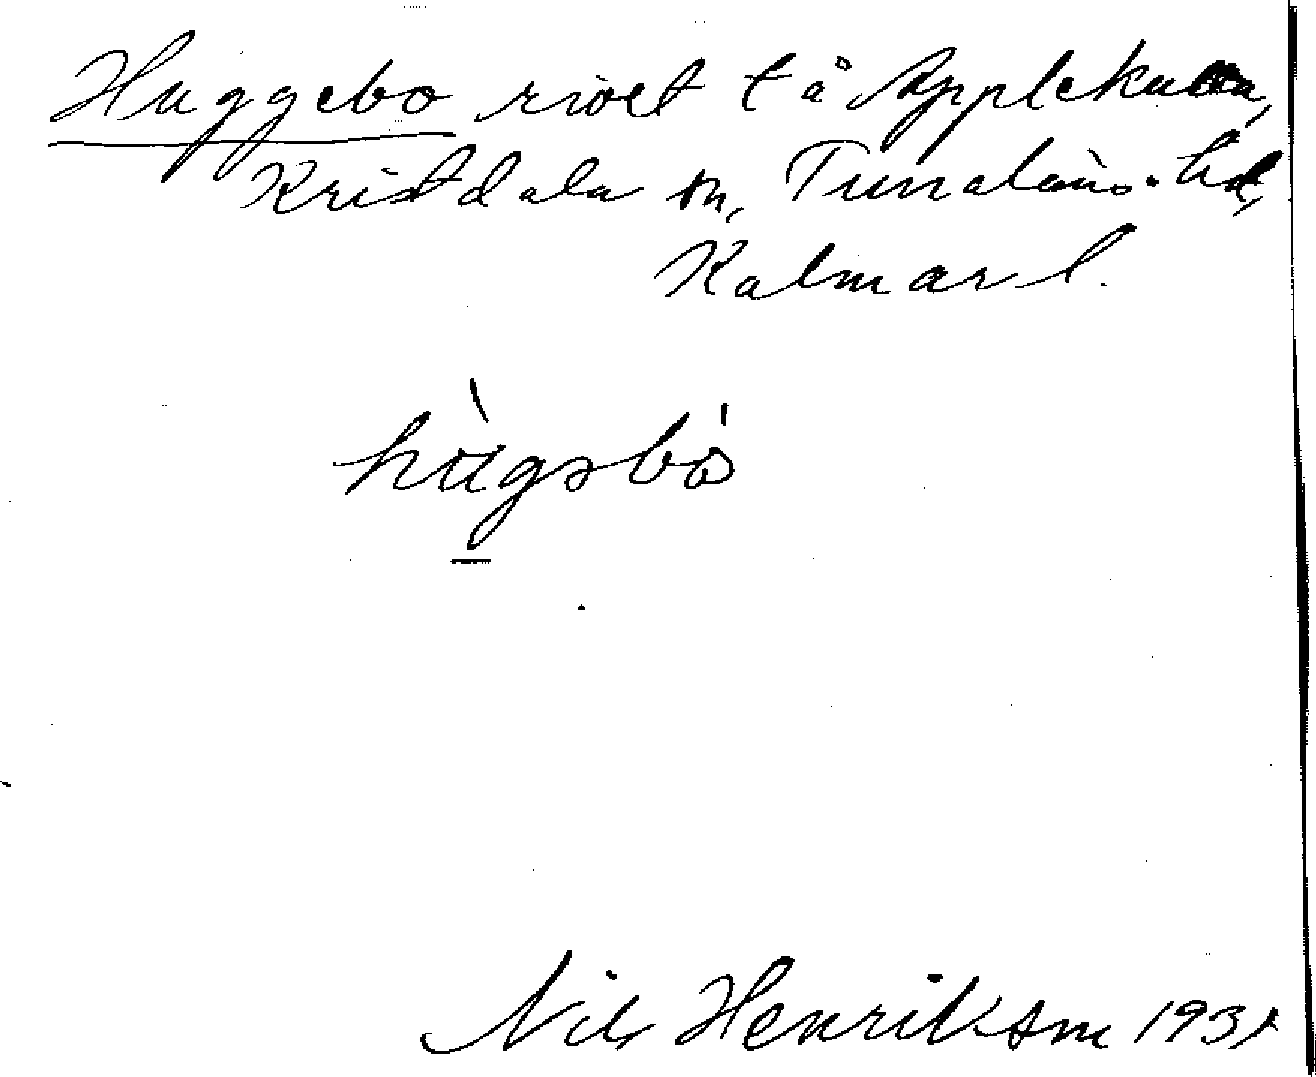 Huggebo rivet tå Applekulla,
Kristdala sn, Tunaläns hd,
Kalmar l.
hùgəbó
Nils Henriksson